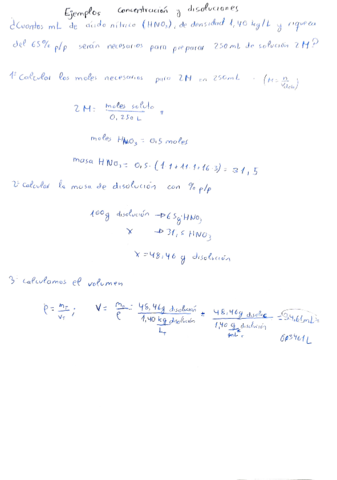 Ejemplos concentración y disoluciones
¿Cuántos mL de ácido nítrico (HNO₃), de densidad 1,40 kg/L y riqueza
del 65% p/p serán necesarios para preparar 250mL de solución 2M?
1) Calcular los moles necesarios para 2M en 250mL
2M = moles soluto / 0,250L
moles HNO₃ = 0,5 moles
masa HNO₃ = 0,5 · (1·1+1·14+16·3) = 31,5
2) Calcular la masa de disolución con % p/p
100g disolución → 65g HNO₃
x → 31,5 HNO₃
x = 48,46 g disolución
3) calculamos el volumen
ρ = m / v ; V = m / ρ = 48,46g disolución / 1,40 kg disolución / L = 48,46g / 1,40 g disolución / mL = 34,61mL =